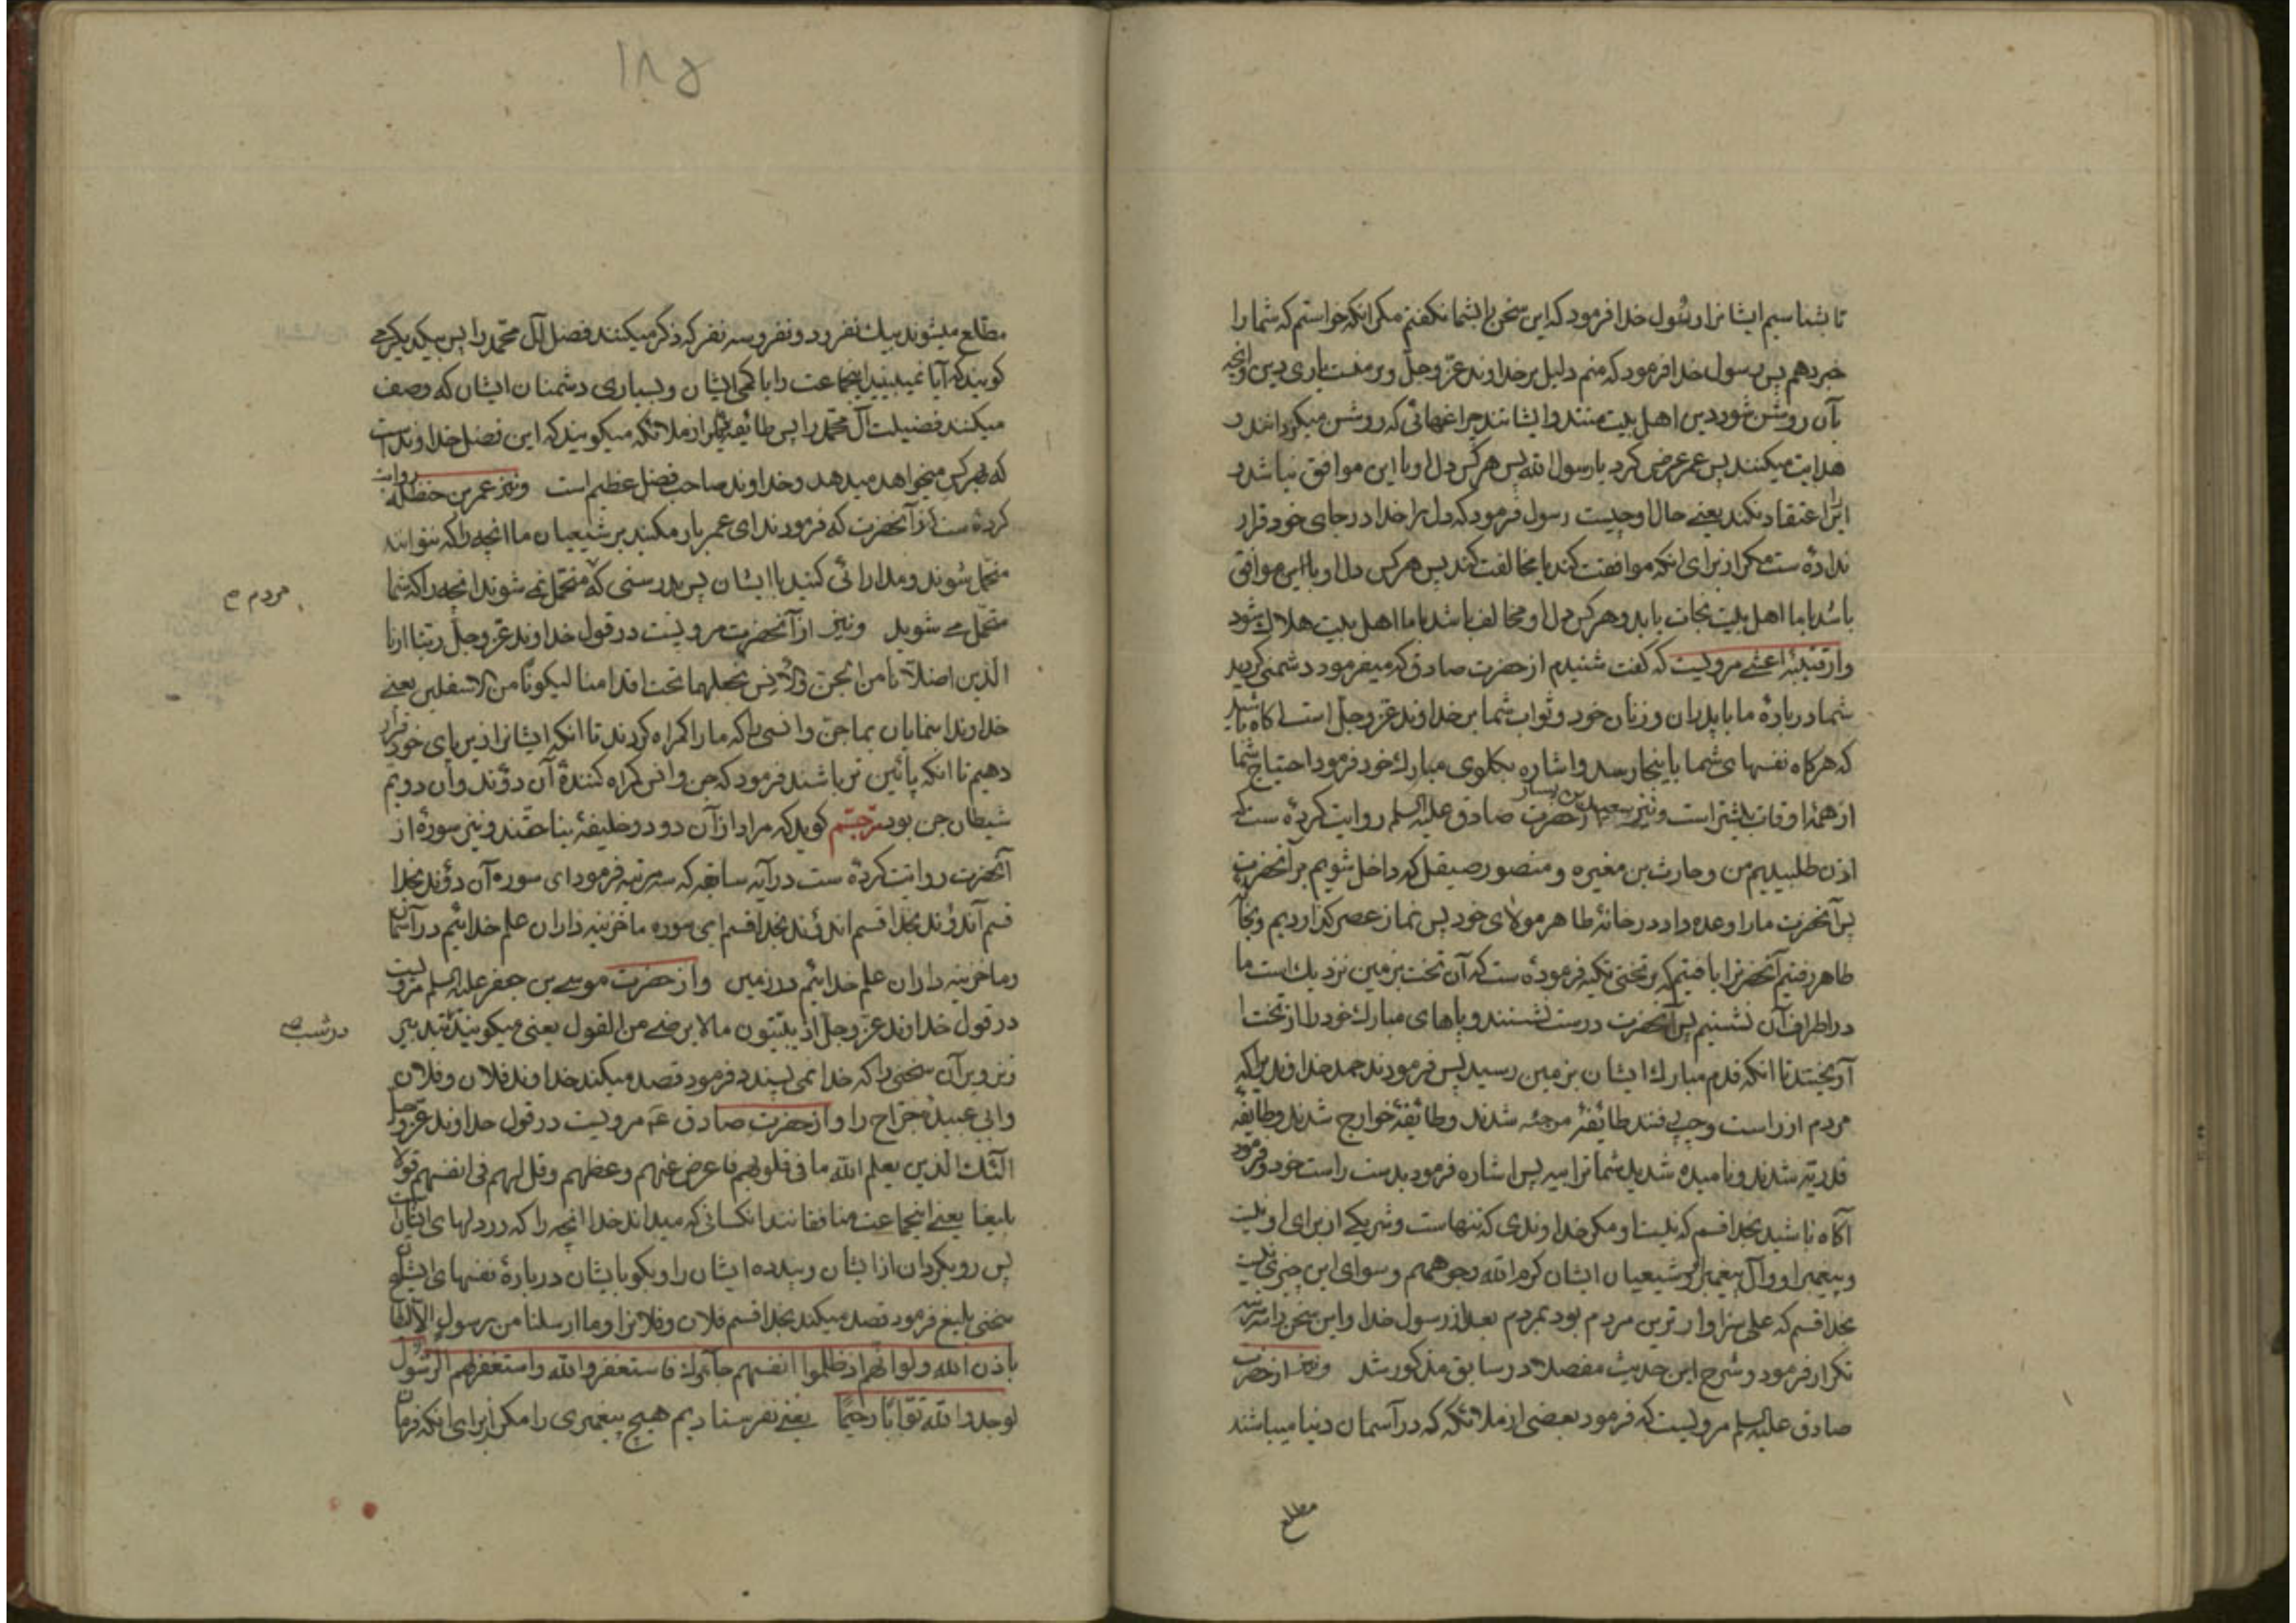 تا بشناسیم ایشانرا رسول خدا فرمود که این سخن را بشما نکفتم مکر انکه خواستم که شما را
خبر دهم پس رسول خدا فرمود که منم دلیل بر خداوند عزّ و جلّ و بر منست یاری دین وانچه
بآن روشن شود دین اهل بیت منند و ایشانند چراغهائی که روشن میکردانند و
هدایت میکنند پس عمر عرض کرد یا رسول الله پس هر کس دل او با این موافق نباشد و
اینرا اعتقاد نکند یعنے حال او چیست رسول فرمود که دل را خدا در جای خود قرار
نداده ست مکر از برای انکه موافقت کند یا مخالفت کند پس هر کس دل او با این موافق
باشد با ما اهل بیت نجات یابد و هر کس دل او مخالف باشد با ما اهل بیت هلاک شود
و از قتیبهٔ اعشے مرویست که کفت شنیدم از حضرت صادق که میفرمود دشمنی کردید
شما در بارهٔ ما با پدران و زنان خود و ثواب شما بر خداوند عزّ و جلّ است آکاه باشید
که هرکاه نفسهای شما باینجا رسد و اشاره بکلوی مبارک خود فرمود احتیاج شما
از همهٔ اوقات بیشتر است و نیز سعید بن یسار از حضرت صادق علیه السلم روایت کرده ست که
اذن طلبیدیم من و حارث بن مغیره و منصور صیقل که داخل شویم بر آنحضرت
پس آنحضرت ما را وعده داد در خانهٔ طاهر مولای خود پس نماز عصر کذاردیم و بخانه
طاهر رفتیم آنحضرترا یافتیم که بر تختی تکیه فرموده ست که آن تخت بزمین نزدیک است ما
در اطراف آن نشستیم پس آنحضرت درست نشستند و پاهای مبارک خود را از تخت
آویختند تا انکه قدم مبارک ایشان بزمین رسید پس فرمودند حمد خداوندیراکه
مردم از راست و چپ رفتند طائفهٔ مرجئه شدند و طائفهٔ خوارج شدند و طائفهٔ
قدریّه شدند و نامیده شدید شما ترابیه پس اشاره فرمود بدست راست خود و فرمود
آکاه باشید بخدا قسم که نیست او مکر خداوندی که تنهاست و شریکے از برای او نیست
و پیغمبر او و آل پیغمبر او و شیعیان ایشان کرم الله وجوههم و سوای این چیزی نیست
بخدا قسم که علی سزاوارترین مردم بود بمردم بعد از رسول خدا و این سخن را سه مرتبه
تکرار فرمود و شرح این حدیث مفصلا در سابق مذکور شد و نیز از حضرت
صادق علیه السلم مرویست که فرمود بعضی از ملائکه که در آسمان دنیا میباشند
مطلع
۱۸۵
مطلع میشوند بیک نفر و دو نفر و سه نفر که ذکر میکنند فضل آل محمّد را پس بیکدیکر مے
کویند که آیا نمیبینید اینجماعت را با کمی ایشان و بسیاری دشمنان ایشان که وصف
میکنند فضیلت آل محمّد را پس طائفهٔ دیکر از ملائکه میکویند که این فضل خداوند است
که بهرکس میخواهد میدهد و خداوند صاحب فضل عظیم است و نیز عمر بن حنظله روایت
کرده ست از آنحضرت که فرمودند ای عمر بار مکنید بر شیعیان ما انچه را که نتوانند
متحمّل شوند و مدارائی کنید با ایشان پس بدرستی که متحمّل نمے شوند انچه را که شما
مردم
متحمّل مے شوید و نیز از آنحضرت مرویست در قول خداوند عزّ و جلّ ربّنا ارنا
الذین اضلّانا من الجنّ والانس نجعلهما تحت اقدامنا لیکونا من الاسفلین یعنے
خداوندا بنمایان بما جن و انسی را که ما را کمراه کردند تا انکه ایشانرا در زیر پای خود قرار
دهیم تا انکه پائین تر باشند فرمود که جن و انس کمراه کنندهٔ آن دوند و آن دویّم
شیطان جن بود مترجم کوید که مراد از آن دو دو خلیفهٔ بناحقند و نیز سورهٔ از
آنحضرت روایت کرده ست در آیهٔ سابقه که سه مرتبه فرمود ای سوره آن دوند بخدا
قسم آندوند بخدا قسم اندوند بخدا قسم ای سوره ما خزینه داران علم خدائیم در آسمان
و ما خزینه داران علم خدائیم در زمین و از حضرت موسے بن جعفر علیه السلم مرویست
در قول خداوند عزّ و جلّ اذ یبیّتون ما لا یرضے من القول یعنی میکویند بتدبیر
در شب صح
و تزویر آن سخنی را که خدا نمی پسندد فرمود قصد میکند خداوند فلان و فلان
و ابی عبیدهٔ جرّاح را و از حضرت صادق ع مرویست در قول خداوند عزّ و جل
اولئک الذین یعلم الله ما فی قلوبهم فاعرض عنهم وعظهم وقل لهم فی انفسهم قولا
بلیغا یعنے اینجماعت منافقانند انکسانی که میداند خدا انچه را که در دلهای ایشان است
پس رو بکردان از ایشان و پند ده ایشان را و بکو بایشان در بارهٔ نفسهای ایشان
سخنی بلیغ فرمود قصد میکند بخدا قسم فلان و فلانرا وما ارسلنا من رسول الا لیطاع
باذن الله ولو انّهم اذ ظلموا انفسهم جاؤک فاستغفروا الله واستغفر لهم الرسول
لوجدوا الله توّابا رحیما یعنے نفرستادیم هیچ پیغمبری را مکر از برای انکه فرمان